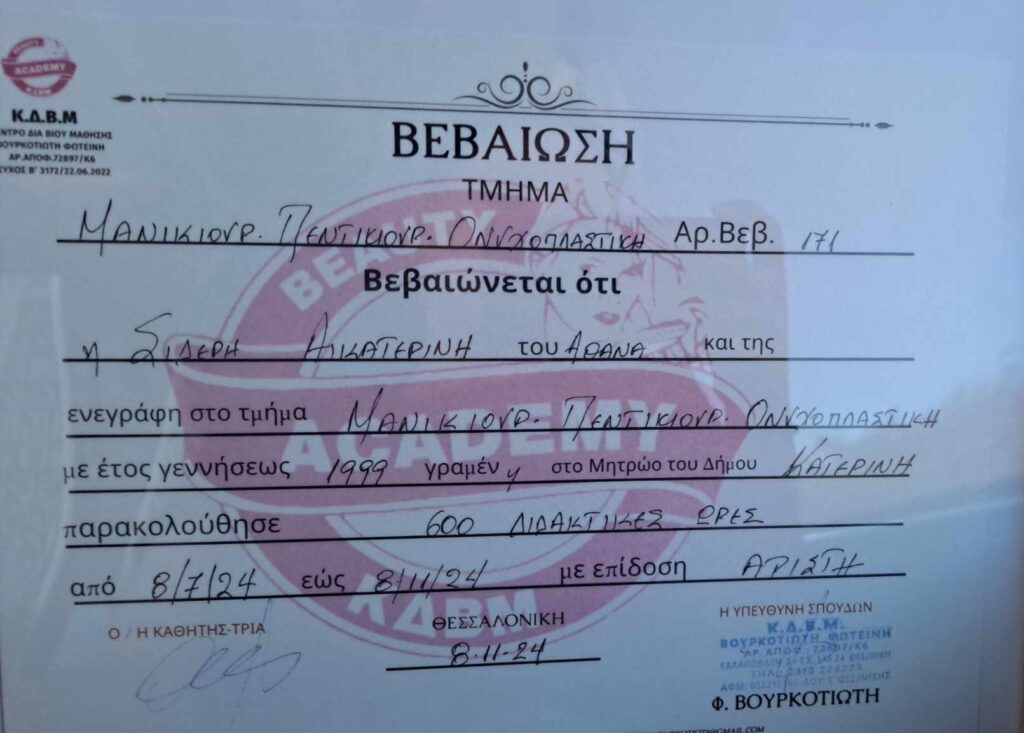 BEAUTY
ACADEMY
ΚΔΒΜ
Κ.Δ.Β.Μ
ΝΤΡΟ ΔΙΑ ΒΙΟΥ ΜΑΘΗΣΗΣ
ΒΟΥΡΚΟΤΙΩΤΗ ΦΩΤΕΙΝΗ
ΑΡ.ΑΠΟΦ.72897/Κ6
ΕΥΧΟΣ Β' 3172/22.06.2022
ΒΕΒΑΙΩΣΗ
ΤΜΗΜΑ
ΜΑΝΙΚΙΟΥΡ. ΠΕΝΤΙΚΙΟΥΡ. ΟΝΥΧΟΠΛΑΣΤΙΚΗ Αρ.Βεβ. 171
Βεβαιώνεται ότι
η ΣΙΔΕΡΗ ΑΙΚΑΤΕΡΙΝΗ του ΑΘΑΝΑ και της
ενεγράφη στο τμήμα ΜΑΝΙΚΙΟΥΡ. ΠΕΝΤΙΚΙΟΥΡ. ΟΝΥΧΟΠΛΑΣΤΙΚΗ
με έτος γεννήσεως 1999 γραμένη στο Μητρώο του Δήμου ΚΑΤΕΡΙΝΗ
παρακολούθησε 600 ΔΙΔΑΚΤΙΚΕΣ ΩΡΕΣ
από 8/7/24 εώς 8/11/24 με επίδοση ΑΡΙΣΤΗ
BEAUTY
ACADEMY
ΚΔΒΜ
Ο / Η ΚΑΘΗΤΗΣ-ΤΡΙΑ
ΘΕΣΣΑΛΟΝΙΚΗ
8.11.24
Η ΥΠΕΥΘΥΝΗ ΣΠΟΥΔΩΝ
Κ.Δ.Β.Μ.
ΒΟΥΡΚΟΤΙΩΤΗ ΦΩΤΕΙΝΗ
ΑΡ. ΑΠΟΦ.: 72897/Κ6
Φ. ΒΟΥΡΚΟΤΙΩΤΗ